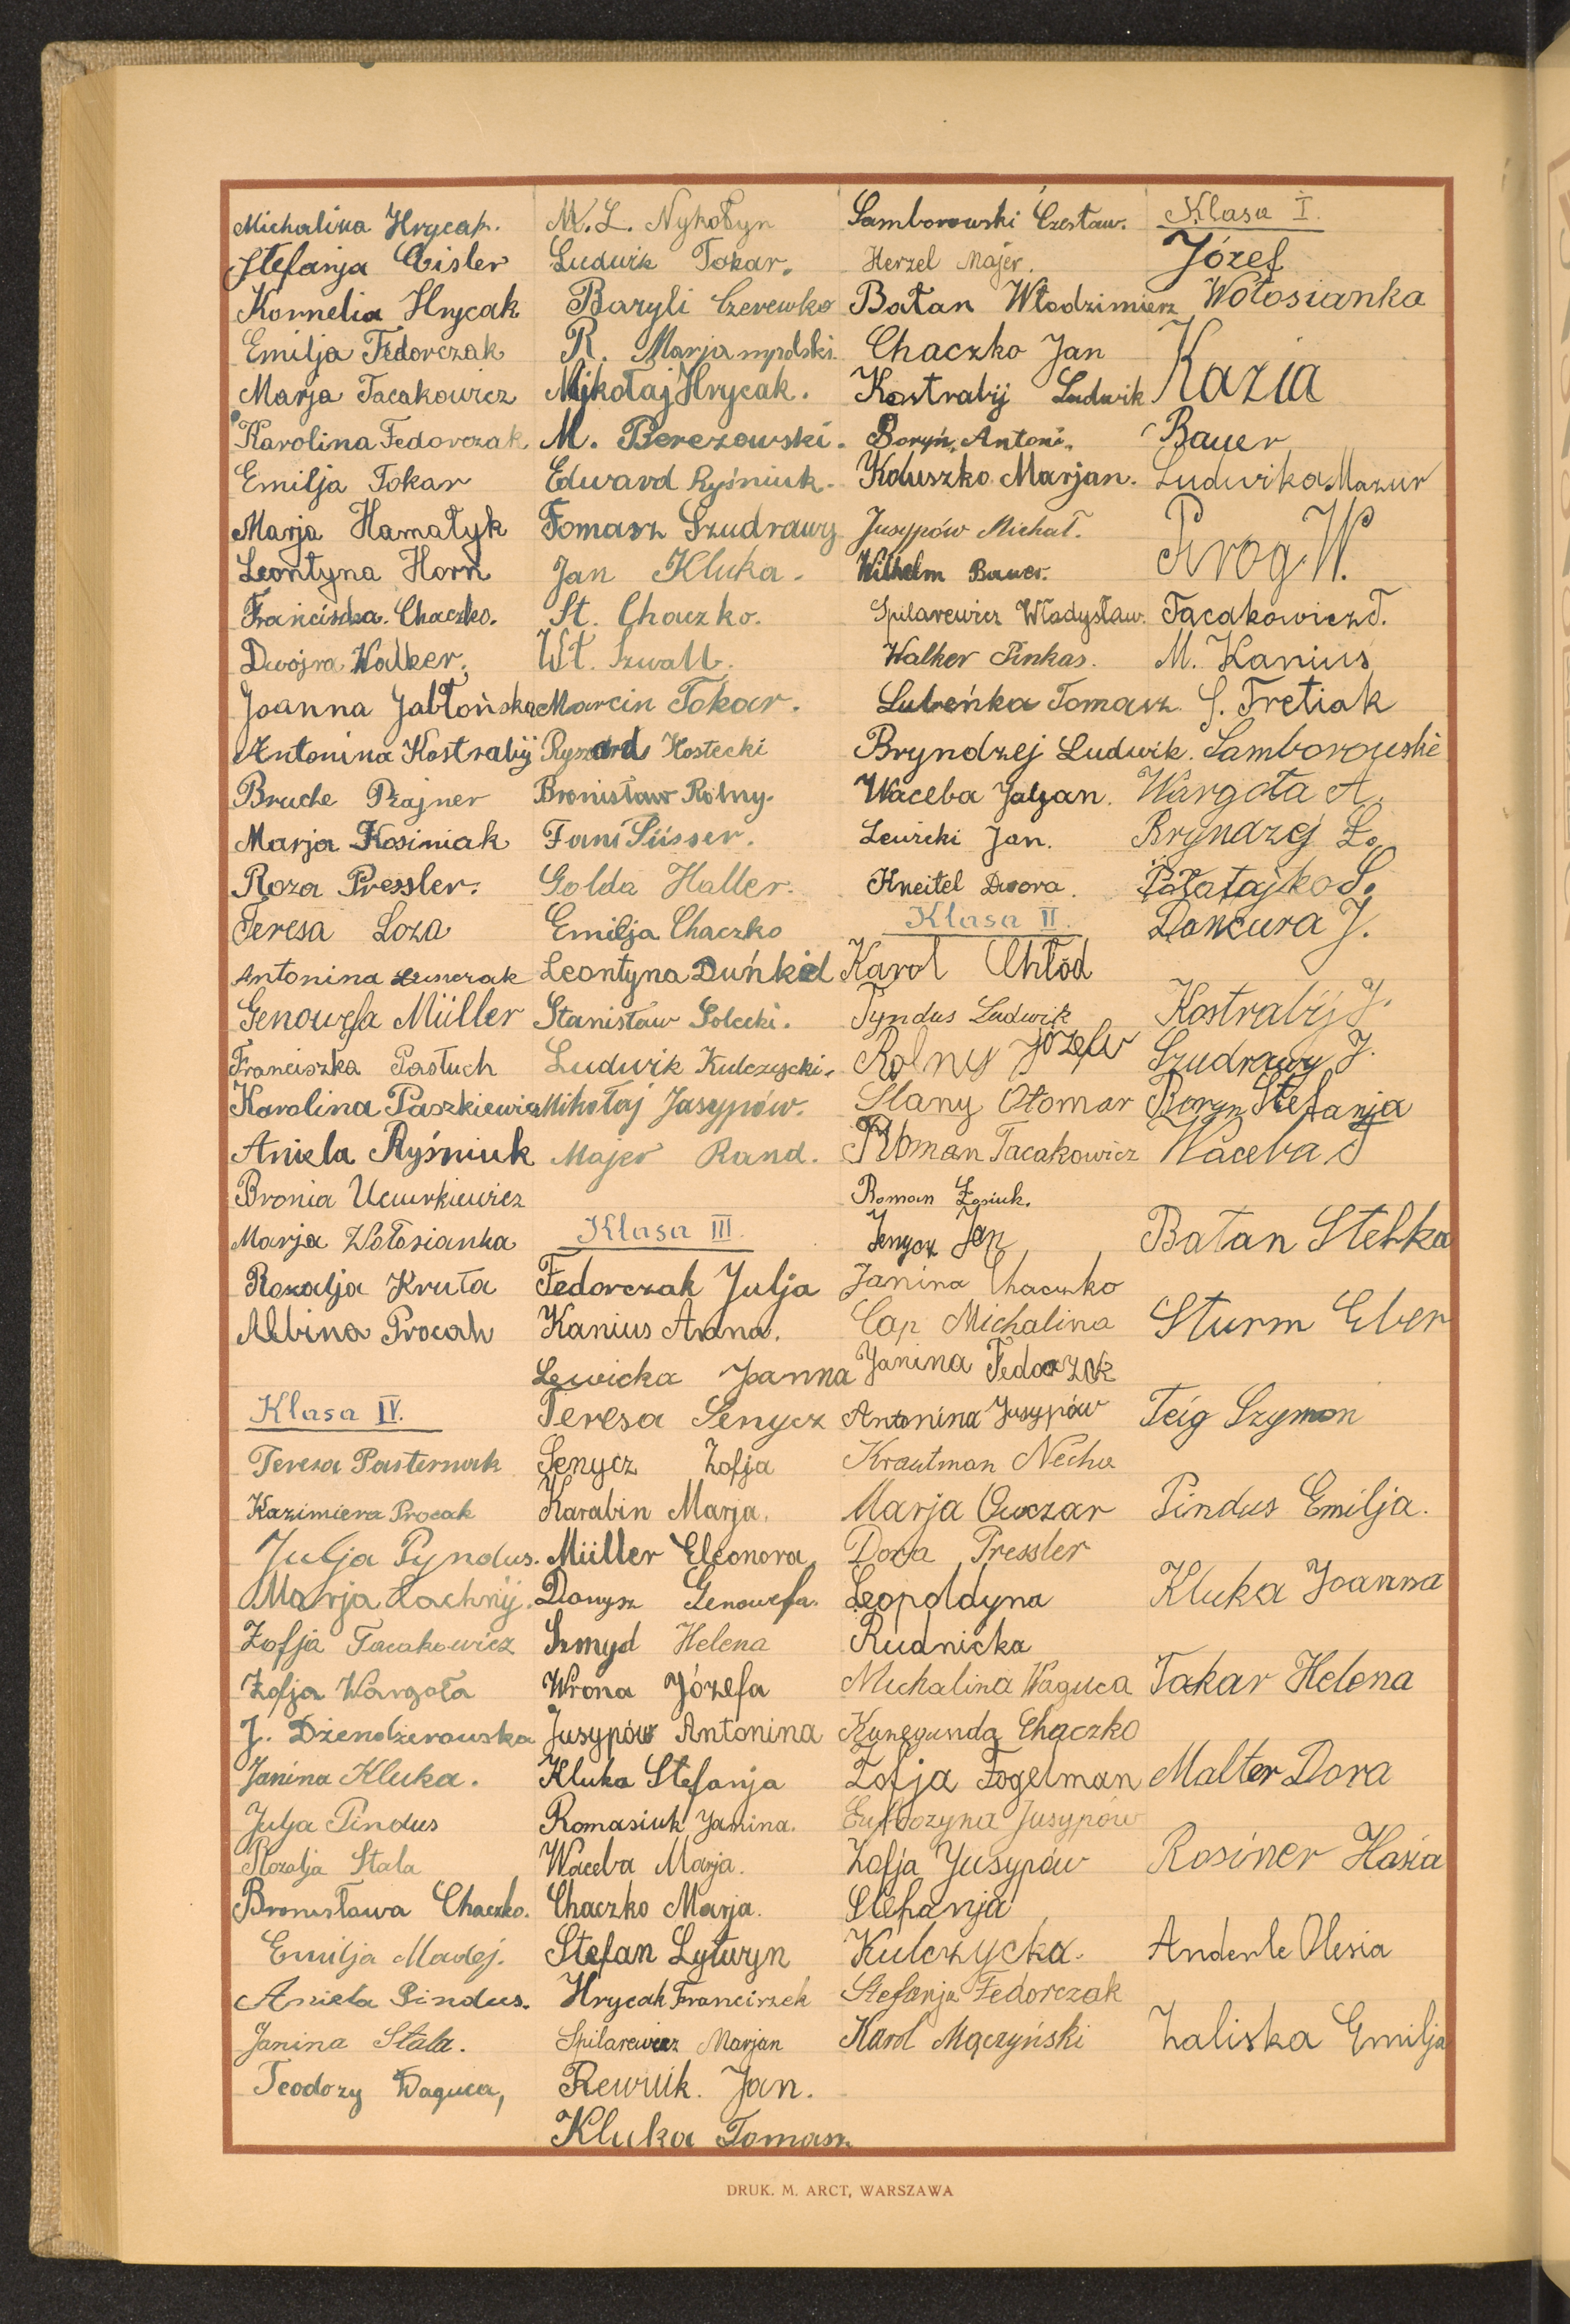 Michalina Hrycak.
Stefanja Eisler
Kornelia Hrycak
Emilja Fedorczak
Marja Tacakowicz
Karolina Fedorczak.
Emilja Tokar
Marja Hamatyk
Leontyna Horn
Franciszka. Chaczko.
Dwojra Walker.
Joanna Jabłońska
Antonina Kostrabij
Bruche Prajner
Marja Kosiniak
Roza Pressler.
Teresa Loza
Antonina
Genowefa Müller
Franciszka Pastuch
Karolina Paszkiewicz
Aniela Ryśniuk
Bronia Ucurkiewicz
Marja Wołosianka
Rozalja Kruta
Albina Procak
Klasa IV.
Teresa Pasternak
Kazimiera Procak
Julja Pyndus.
Marja Lachnij.
Zofja Tacakowicz
Zofja Wargoła
J. Dżendżerowska
Janina Kluka.
Julja Pindus
Rozalja Stala
Bronisława Chaczko.
Emilja Madej.
Aniela Pindus.
Janina Stala.
Teodozy Waguca,
M. L. Nykołyn
Ludwik Tokar.
Baryli Czerewko
R.
Mikołaj Hrycak.
M. Berezowski.
Edward Ryśniuk.
Tomasz Szudrawy
Jan Kluka.
St. Chaczko.
Wł. Szwall.
Marcin Tokar.
Ryszard Kostecki
Bronisław Rolny.
Fani Süsser.
Golda Haller.
Emilja Chaczko
Leontyna Duńkel
Stanisław Solecki.
Ludwik Kulczycki.
Mikołaj Jasypów.
Majer Rand.
Klasa III.
Fedorczak Julja
Kanius Anna.
Lewicka Joanna
Teresa Senycz
Senycz Zofja
Karabin Marja.
Müller Eleonora
Donysz Genowefa.
Szmyd Helena
Wrona Józefa
Jusypów Antonina
Kluka Stefanja
Romasiuk Janina.
Waceba Marja.
Chaczko Marja.
Stefan Lyturyn
Hrycak Franciszek
Spilarewicz Marjan
Rewiuk. Jan.
Kluka Tomasz
Samborowski Czesław.
Herzel Majer.
Batan Włodzimierz
Chaczko Jan
Kostrabij Ludwik
Boryń, Antoni.
Koluszko Marjan.
Jusypów Michał.
Wilhelm Bauer.
Spilarewicz Władysław.
Walker Pinkas.
Lubeńka Tomasz
Bryndzej Ludwik.
Waceba Juljan.
Lewicki Jan.
Kneitel Dwora.
Klasa II.
Karol Chłód
Pyndus Ludwik
Rolny Józefw
Slany Otomar
Roman Tacakowicz
Roman Łasiuk.
Senycz Jan
Janina Chaczko
Cap Michalina
Janina Fedorczok
Antonina Jusypów
Krautman Necha
Marja Owczar
Dora Pressler
Leopoldyna
Rudnicka
Michalina Waguca
Kunegunda Chaczko
Zofja Fogelman
Eufrozyna Jusypów
Zofja Jusypów
Stefanja
Kulczycka.
Stefanja Fedorczak
Karol Mączyński
Klasa I.
Józef
Wołosianka
Kazia
Bauer
Ludwika Mazur
Prog W.
Tacakowicz T.
M. Kanius
S. Tretiak
Samborowski
Wargoła A.
Bryndzej L.
Pałatajko S.
Dańcura J.
Kostrabij J.
Szudrawy J.
Boryn Stefanja
Waceba J
Batan Stefka
Sturm Eber
Teig Szymon
Pindus Emilja.
Kluka Joanna
Takar Helena
Malter Dora
Rosiner Hasia
Anderle Olesia
Zaliska Emilja
DRUK. M. ARCT, WARSZAWA